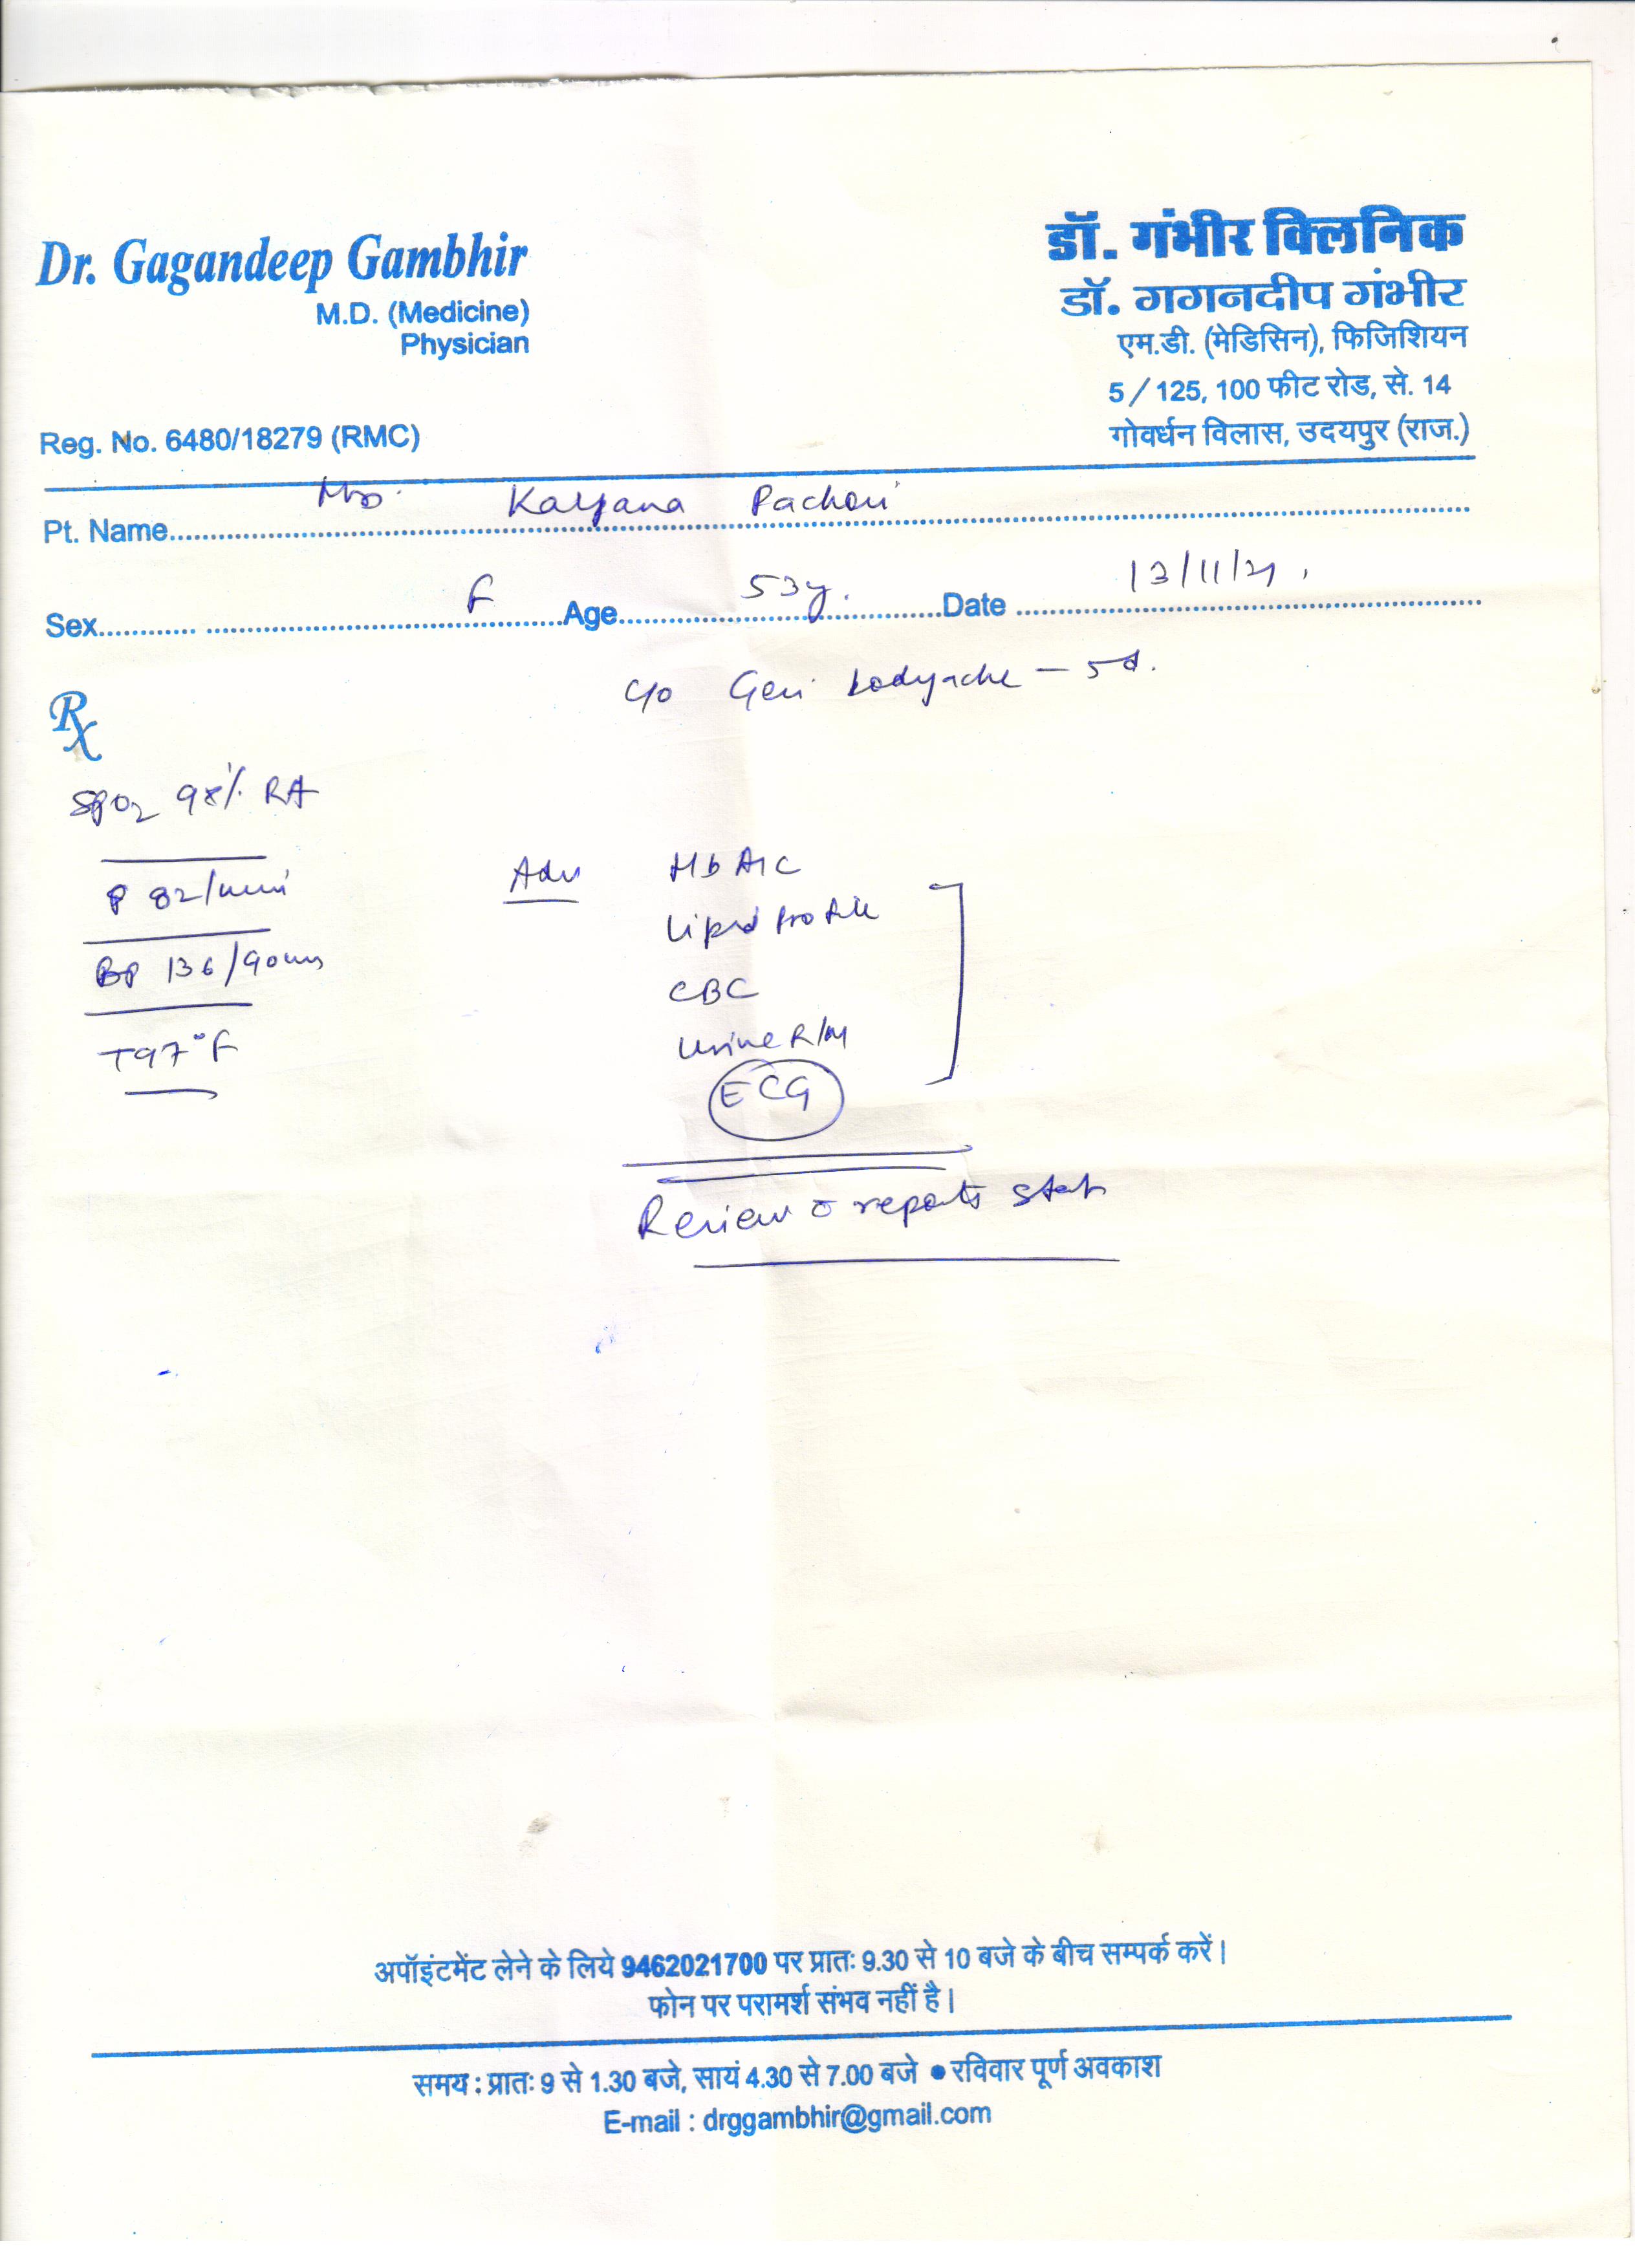 Dr. Gagandeep Gambhir
M.D. (Medicine)
Physician
Reg. No. 6480/18279 (RMC)
डॉ. गंभीर क्लिनिक
डॉ. गगनदीप गंभीर
एम.डी. (मेडिसिन), फिजिशियन
5/125, 100 फीट रोड, से. 14
गोवर्धन विलास, उदयपुर (राज.)
Pt. Name Mrs. Kalpana Pachori
Sex F Age 53y. Date 13/11/21
Rx
c/o Gen bodyache - 5d.
SpO2 98% RA
P 82/min
BP 136/90mm
T 97°F
Adv HbA1C
Lipid Profile
CBC
Urine R/M
ECG
Review c̄ reports stat
अपॉइंटमेंट लेने के लिये 9462021700 पर प्रातः 9.30 से 10 बजे के बीच सम्पर्क करें।
फोन पर परामर्श संभव नहीं है।
समय : प्रातः 9 से 1.30 बजे, सायं 4.30 से 7.00 बजे ● रविवार पूर्ण अवकाश
E-mail : drggambhir@gmail.com